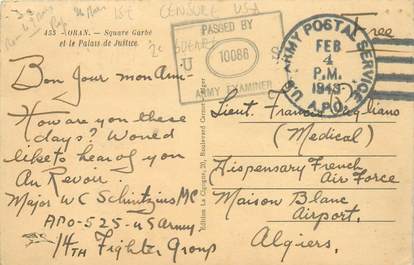 15€ CENSURE USA
2e GUERRE
455 - ORAN. - Square Garbé
et le Palais de Justice
Bon Jour mon Ami-
How are you these
days? Would
like to hear of you
Au Revoir.
Major WC Schintzius MC
APO-525-US Army
14TH Fighter Group
Edition La Cigogne, 20, Boulevard
PASSED BY
U S
10086
ARMY EXAMINER
U.S. ARMY POSTAL SERVICE
FEB
4
P.M.
1943
A.P.O.
Free
Lieut. Francis
(Medical)
Dispensary French
Air Force
Maison Blanc
Airport,
Algiers.